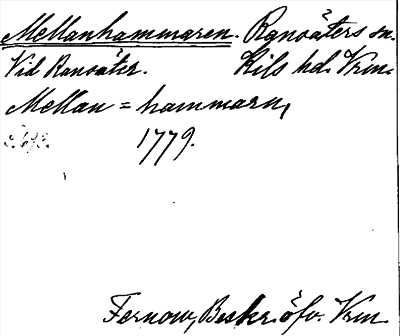 Mellanhammaren. Ransäters sn.
Vid Ransäter. Kils hd. Vrm.
Mellan=hammarn,
1779.
Fernow, Beskr. öfv. Vrm.